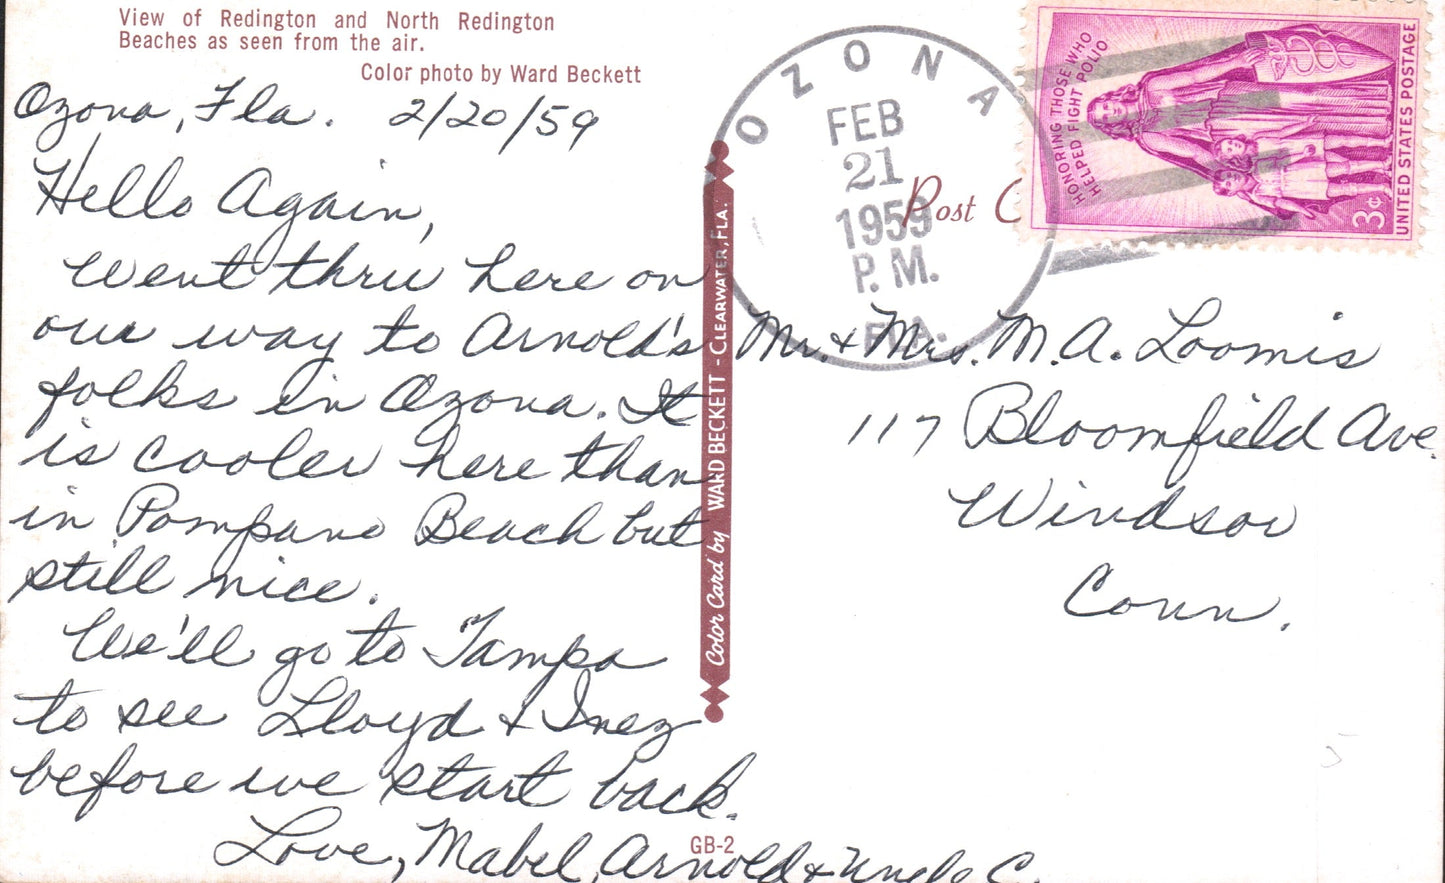 View of Redington and North Redington
Beaches as seen from the air.
Color photo by Ward Beckett
Ozona, Fla. 2/20/59
Hello Again,
Went thru here on
our way to Arnold's
folks in Ozona. It
is cooler here than
in Pompano Beach but
still nice.
We'll go to Tampa
to see Lloyd & Inez
before we start back.
Love, Mabel, Arnold & Uncle C.
GB-2
Color Card by WARD BECKETT - CLEARWATER, FLA.
OZONA
FEB
21
1959
P. M.
FLA.
Post C
HONORING THOSE WHO
HELPED FIGHT POLIO
3¢
UNITED STATES POSTAGE
Mr. & Mrs. M. A. Loomis
117 Bloomfield Ave.
Windsor
Conn.